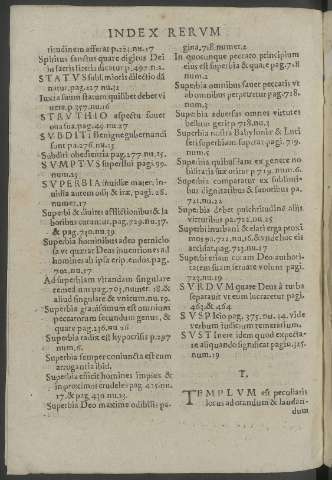 INDEX RERVM
titudinem afferat p.221.nu.17
Spiritus sanctus quare digitus Dei
in sacris literis dicatur p.497.n.2.
STATVS subl.mioris dilectio
natur.pag.127 nu.32
Iuxta suum statum quilibet debet vi
uere.p.357.nu.16
STRVTHIO aspectu fouet
oua sua.pag.49.nu.27
SVBDITI Benigne gubernandi
sunt pa.276.nu.15
Subditi obedientia pag.277.nu.25.
SVMPTVS superflui pag.99.
num.25
SVPERBIA inuidiæ mater, in-
uisilia autem odij & iræ. pag.28.
numer.17
Superbi & diuites afflictionibus & la
boribus curantur.pag.729.nu.37.
& pag.730.nu.39
Superbia hominibus adeo pernicio
sa vt quærat Deus inuentiones ad
homines ab ipsa eripiendos.pag.
702.nu.17
Ad superbiam vitandam singulare
remedium pag.703.numer.18.&
aliud singulare & vnicum nu.19.
Superbia grauissimum est omnium
peccatorum secundum genus, &
quare pag.236.nu.26
Superbia radix est hypocrisis p.297
num.6.
Superbia semper coniuncta est cum
arrogantia ibid.
Superbia efficit homines impios &
in proximos crudeles pag.425.nu.
17.& pag.430.nu.23.
Superbia Deo maxime odibilis pa-
gina.718.numer.2.
In quocunque peccato principium
eius est superbia & quare pag.718
num.2
Superbia omnibus sauet peccatis vt
ab omnibus perpetretur pag.718.
num.3
Superbia aduersus omnes virtutes
bellum gerit p.718.nu.3
Superbia nostra Babyloniæ & Luci
feri superbiam superat pag.719.
num.5
Superbia quibusdam ex genere no
bilitatis suæ oritur p.719.num.6.
Superbia comparatur ex sublimi-
bus dignitatibus & fauoribus pa.
721.nu.22
Superbia debet pulchritudine alijs
virtutibus pa.722.nu.25
Superbi inurbani & elati erga proxi
mos p.722.nu.16.& vnde hoc eis
accidat.pag.723.nu.17
Superbi etiam coram Deo authori-
tatem suam seruare volunt pagi.
723.nu.19
SVRDVM quare Deus à turba
separauit vt eum lucraretur pagi.
463.& 464
SVSPICIO pag.375.nu.14. vide
verbum iudicium temerarium.
SVSTInere idem quod expecta-
re aliquando significat pagin.325.
num.19
T.
TEMPLVM est peculiaris
locus ad orandum & laudan-
dum